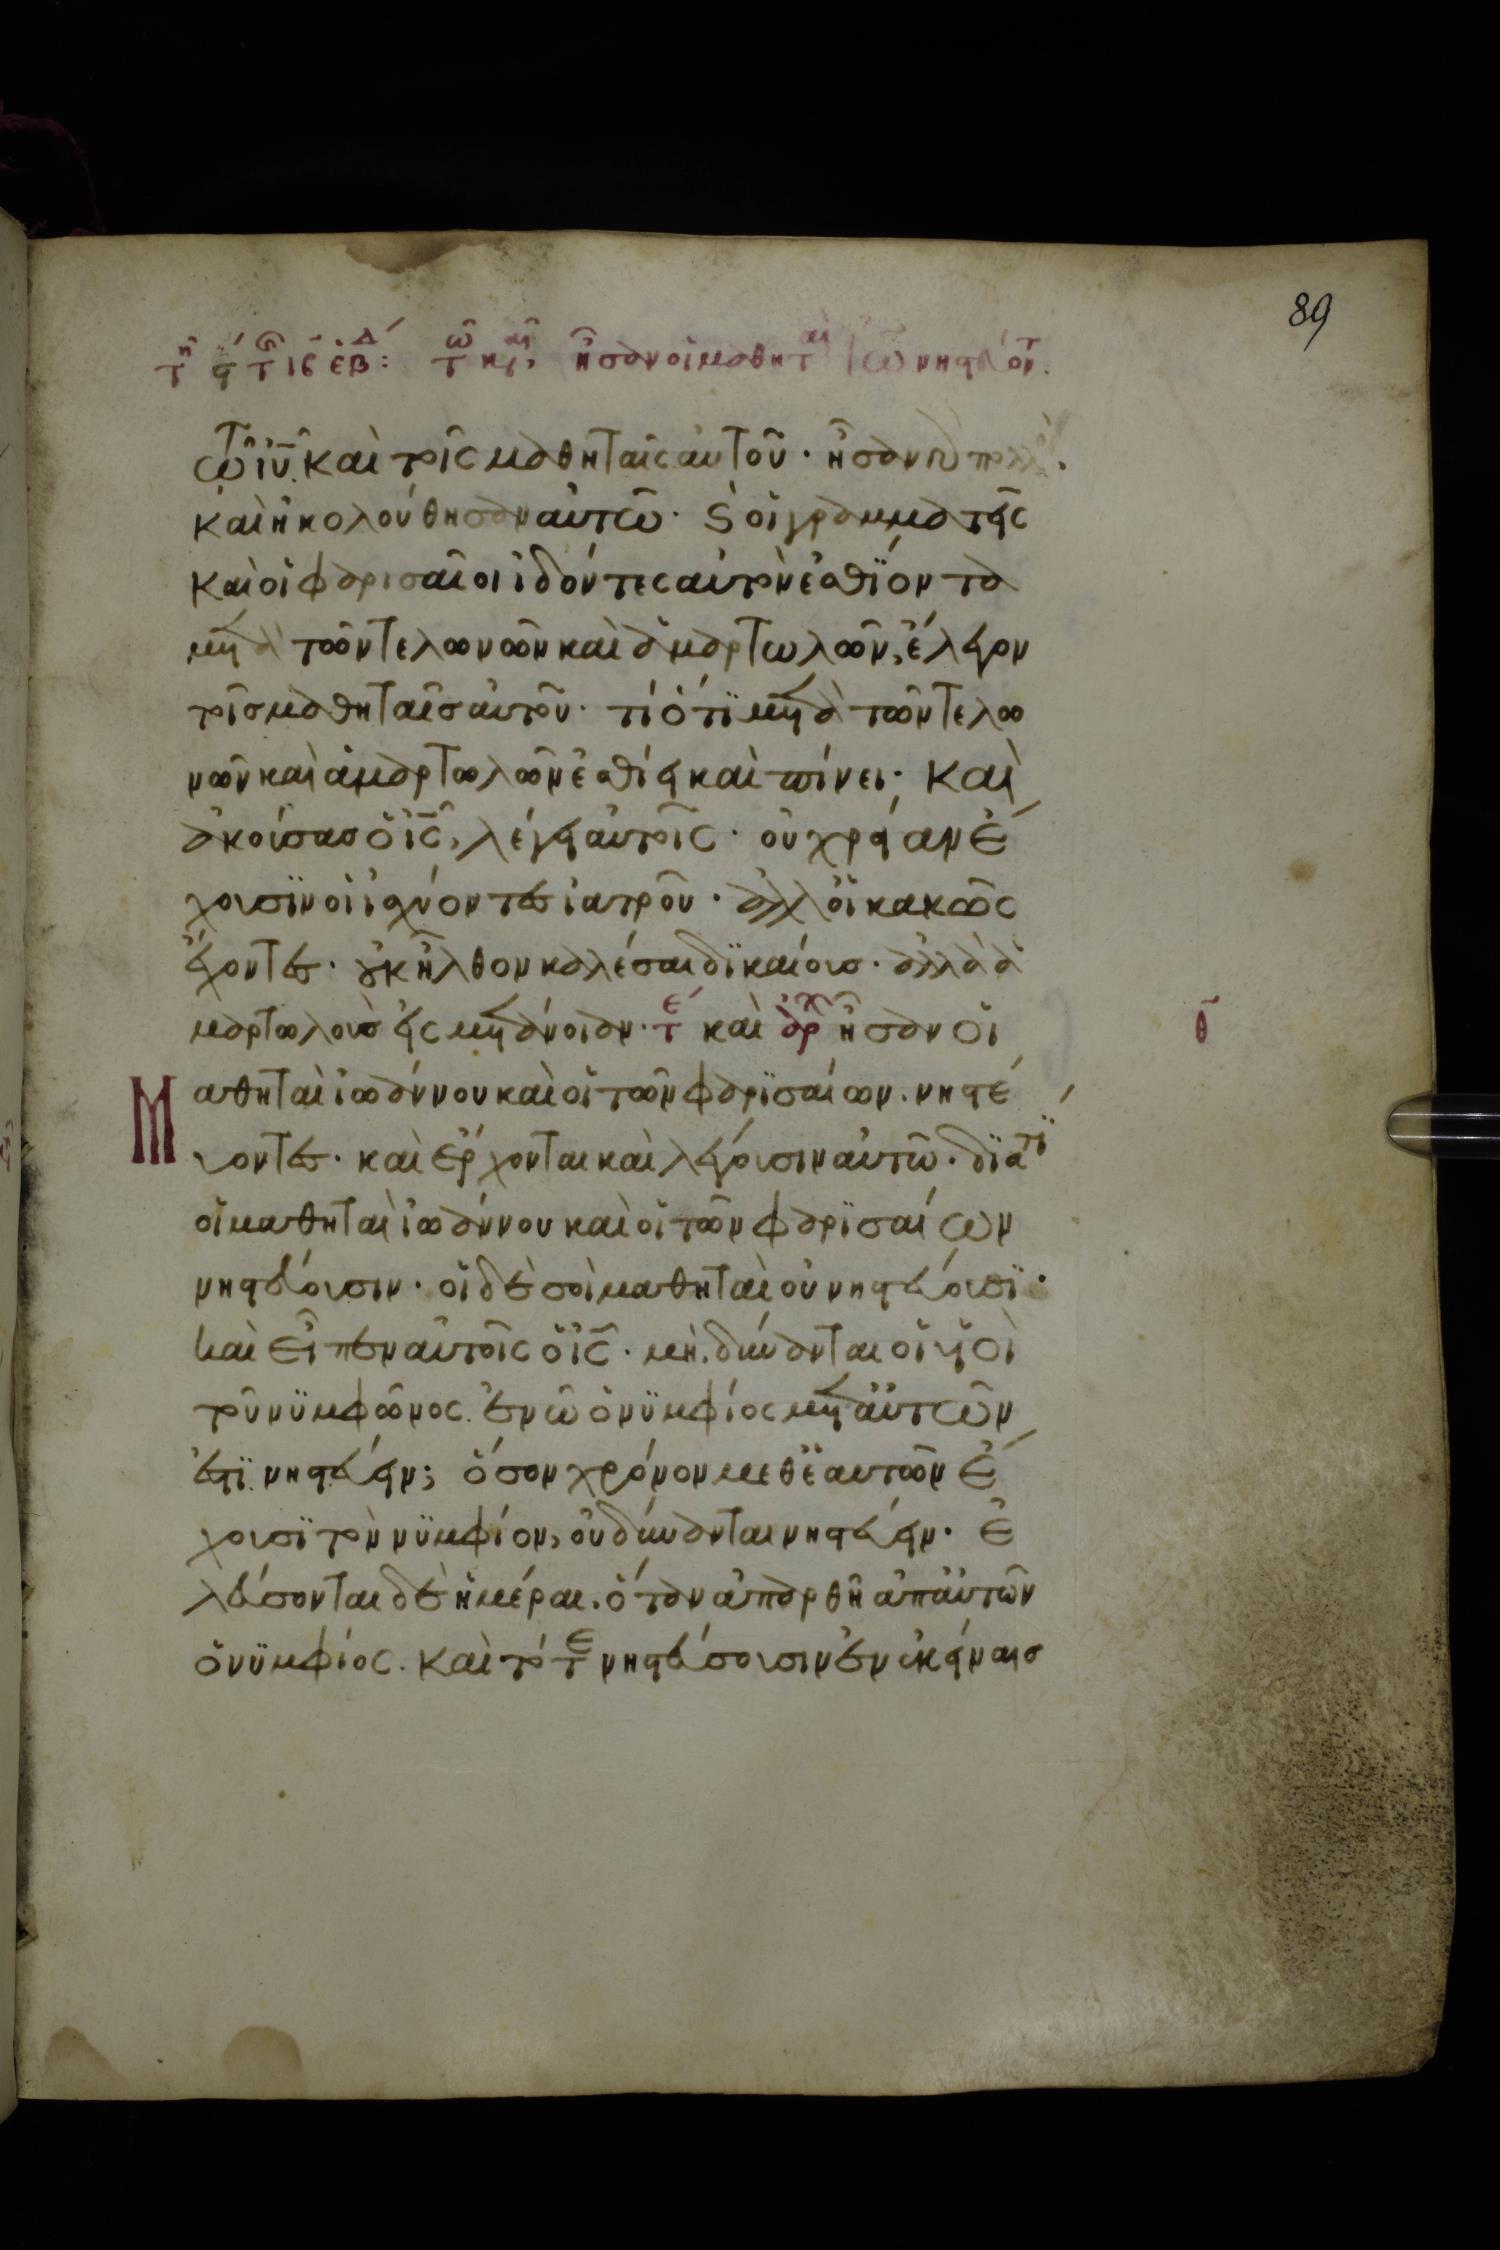 89
τη ϛ τ ιϛ εβδ: τω και ησαν οι μαθηται ιω νηστευον.
τῶ ἰῦ. καὶ τοῖς μαθηταῖς αὐτοῦ · ἦσαν
καὶ ἠκολούθησαν αὐτῶ · ϗ οἱ γραμματεῖς
καὶ οἱ φαρισαῖοι ἰδόντες αὐτὸν ἐσθΐοντα
μετὰ τῶν τελωνῶν καὶ ἁμαρτωλῶν, ἔλεγον
τοῖς μαθηταῖς αὐτοῦ · τί ὅτϊ μετὰ τῶν τελω
νῶν καὶ ἁμαρτωλῶν ἐσθίει καὶ πίνει; καὶ
ἀκούσας ὁ ἰς̅, λέγει αὐτοῖς · οὐ χρείαν ἔ
χουσϊν οἱ ἰσχύοντες ἰατροῦ · ἀλλ οἱ κακῶς
ἔχοντες · οὐκ ἦλθον καλέσαι δϊκαίους · ἀλλὰ ἁ
μαρτωλοὺς εἰς μετάνοιαν · τέ καὶ ἀρχ ἦσαν οἱ
θ
μαθηταὶ ἰωάννου καὶ οἱ τῶν φαρϊσαίων. νηστεύ
οντες · καὶ ἔρχονται καὶ λέγουσιν αὐτῶ · δϊατϊ
οἱ μαθηταὶ ἰωάννου καὶ οἱ τῶν φαρϊσαίων
νηστεύουσιν · οἱ δὲ σοὶ μαθηταὶ οὐ νηστεύουσϊ ·
καὶ εἶπεν αὐτοῖς ὁ ἰς̅ · μὴ δύνανται οἱ υἱοὶ
τοῦ νϋμφῶνος. ἐν ῶ ὁ νϋμφίος μετ αὐτῶν
ἐστϊ νηστεύειν; ὅσον χρόνον μεθ ἑαυτῶν ἔ
χουσϊ τὸν νϋμφίον, οὐ δύνανται νηστεύειν · ἐ
λεύσονται δὲ ἡμέραι. ὅταν ἀπαρθῆ ἀπ αὐτῶν
ὁ νϋμφίος. καὶ τότε νηστεύσουσιν ἐν ἐκείναις